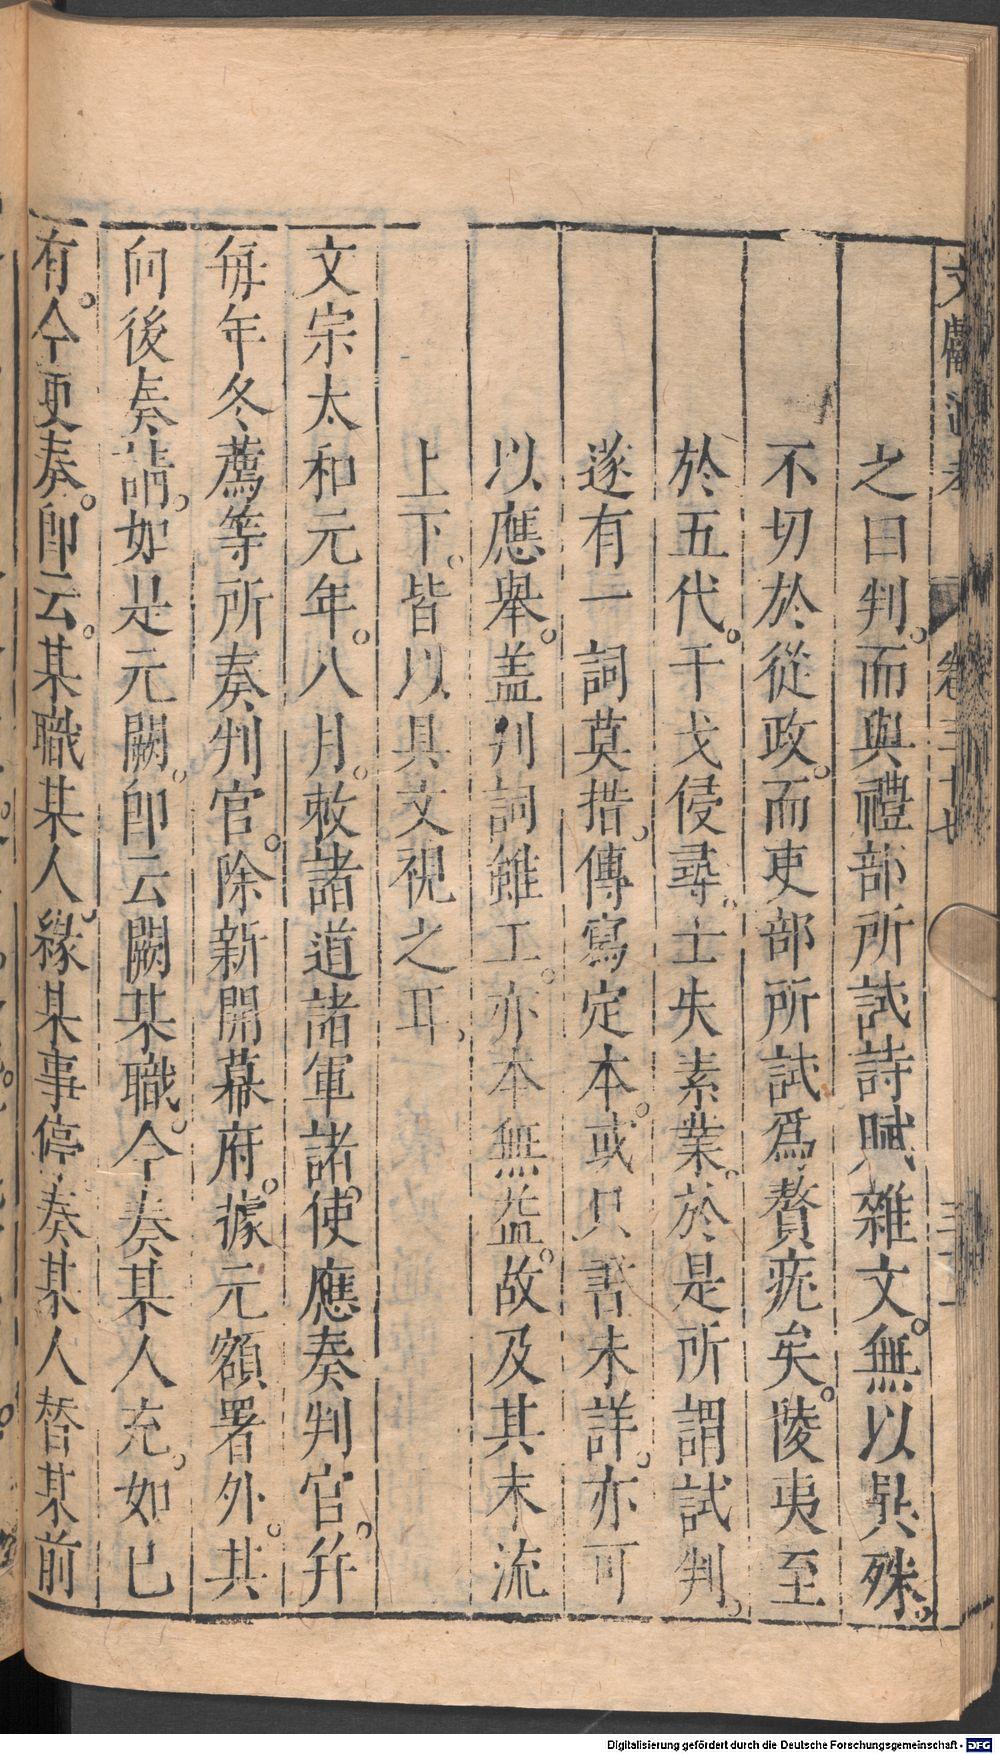 文獻通考 卷三十七 三十一
之曰判。而與禮部所試詩賦雜文。無以異殊。
不切於從政。而吏部所試爲贅疣矣。陵夷至
於五代。干戈侵尋。士失素業。於是所謂試判。
遂有一詞莫措。傳寫定本。或只書未詳。亦可
以應舉。盖判詞雖工。亦本無益。故及其末流
上下。皆以具文視之耳。
文宗太和元年。八月。敕諸道諸軍諸使應奏判官。并
每年冬薦等所奏判官。除新開幕府。據元額署外。其
向後奏請。如是元闕。卽云闕某職。今奏某人充。如已
有。今更奏。卽云。某職某人。緣某事停。奏某人替某前
Digitalisierung gefördert durch die Deutsche Forschungsgemeinschaft - DFG